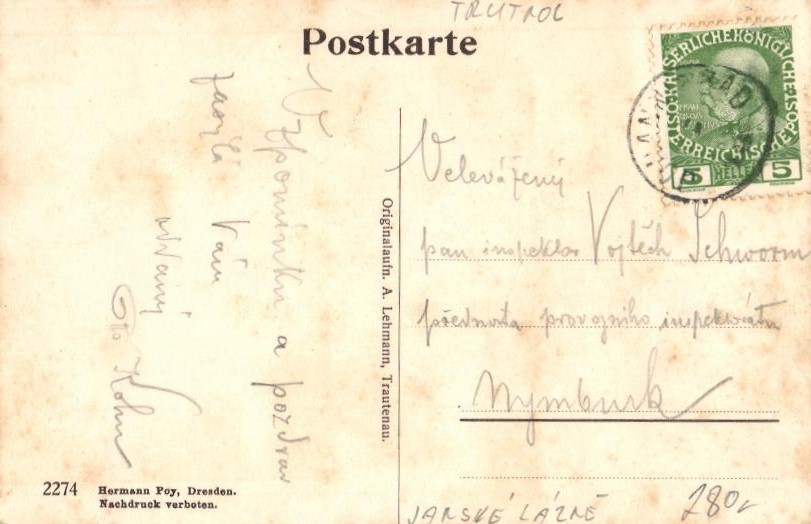 TRUTNOV
Postkarte
KAISERLICHEKÖNIGLICHE
ÖSTERREICHISCHE POST
5 HELLER 5
Vzpomínku a pozdrav
zasílá Vám
oddaný
Kohn
Originalaufn. A. Lehmann, Trautenau.
Velevážený
pan inspektor Vojtěch Schworm
přednosta provozního inspektorátu
Nymburk
2274 Hermann Poy, Dresden.
Nachdruck verboten.
JANSKÉ LÁZNĚ
280,-